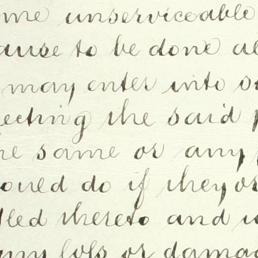 me unserviceable
ause to be done al
may enter into s
ecting the said
he same or any
ould do if they or
lled thereto and
any loss or damag